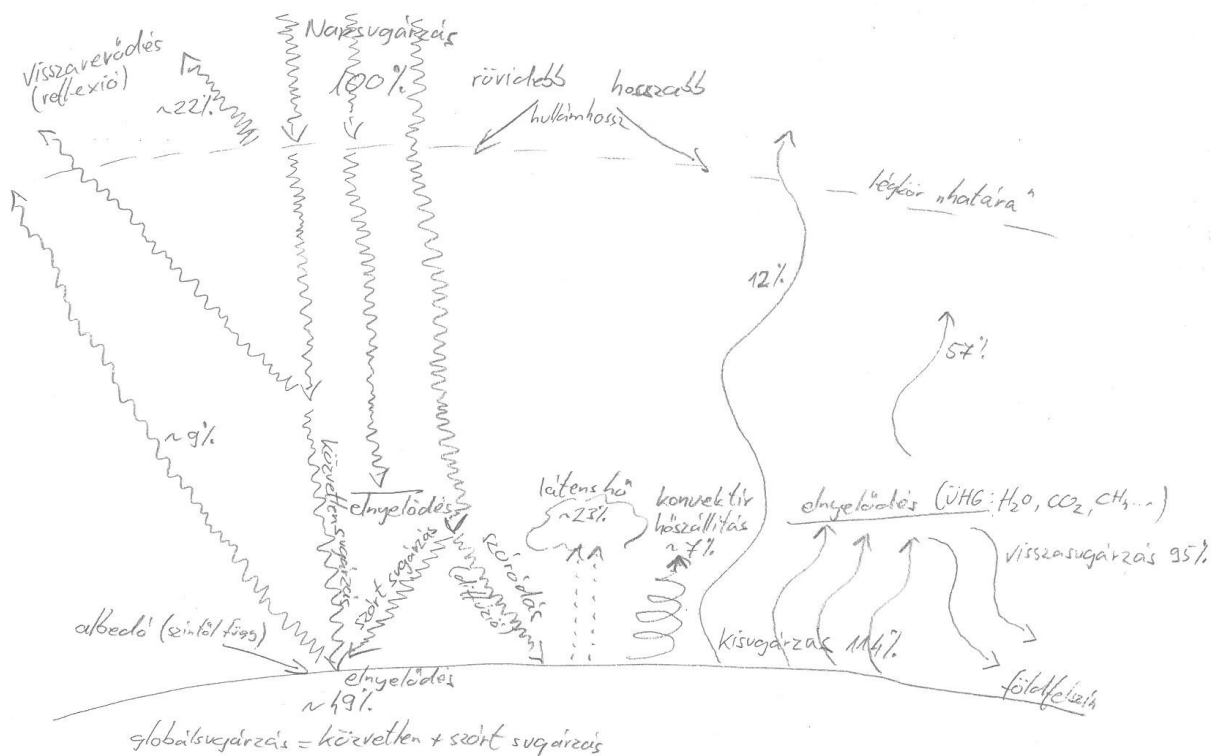 Napsugárzás
100%
visszaverődés
(reflexió)
~22%
rövidebb
hosszabb
hullámhossz
légkör "határa"
12%
57%
~9%
közvetlen sugárzás
elnyelődés
szórt sugárzás
szóródás
(diffúzió)
látens hő
~23%
konvektív
hőszállítás
~7%
elnyelődés (ÜHG: H₂O, CO₂, CH₄...)
visszasugárzás 95%
kisugárzás 114%
albedó (színtől függ)
földfelszín
elnyelődés
~49%
globálsugárzás = közvetlen + szórt sugárzás